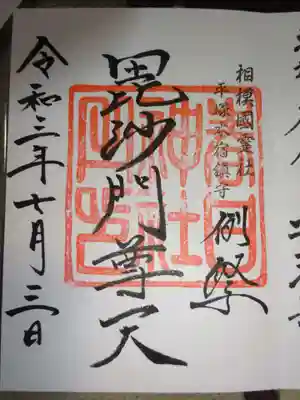 相模國霊社
平塚本宿鎮守
例祭
毘沙門尊天
令和三年七月三日